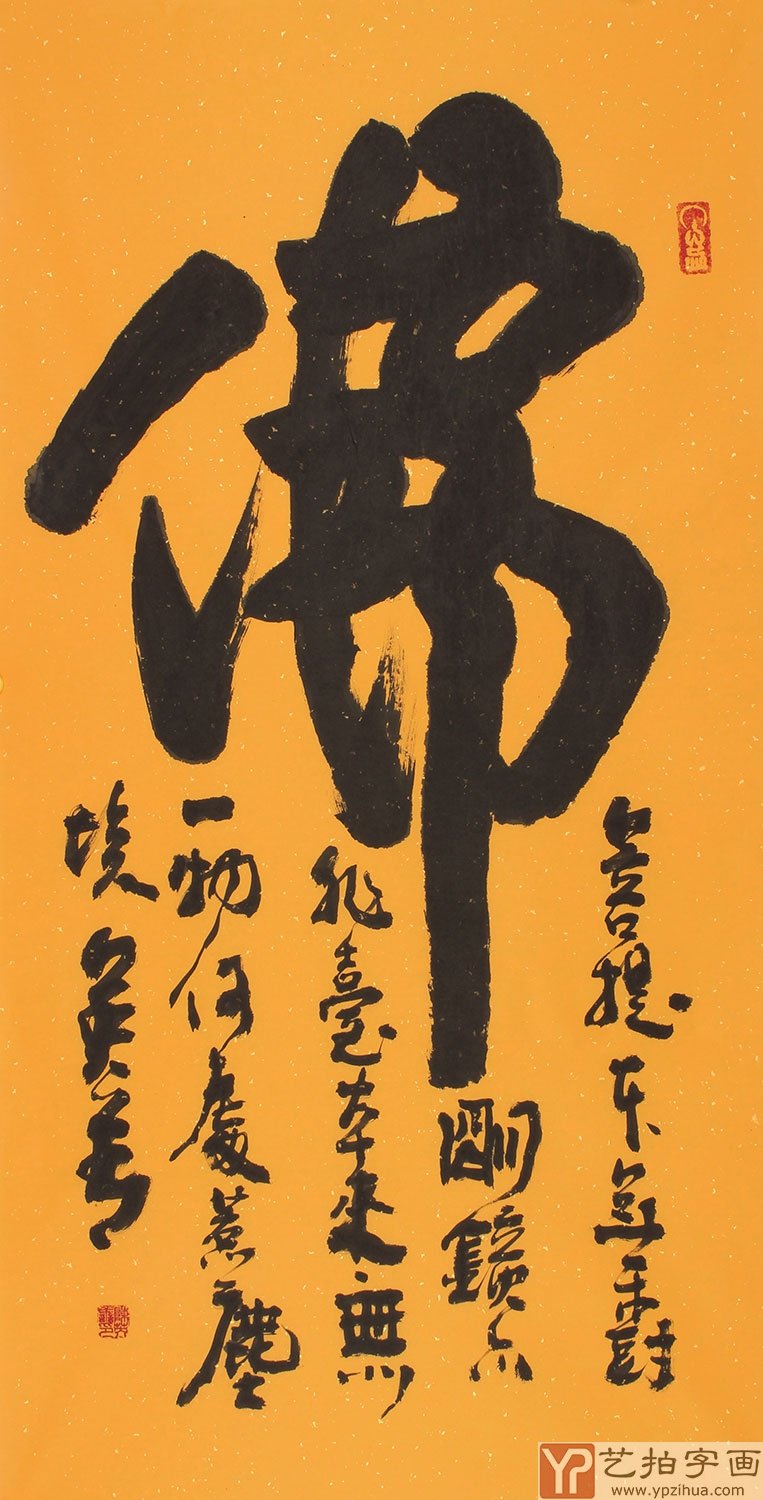 佛
菩提本無樹
明鏡亦
非臺本來無
一物何處惹塵
埃
YP 艺拍字画
www.ypzihua.com